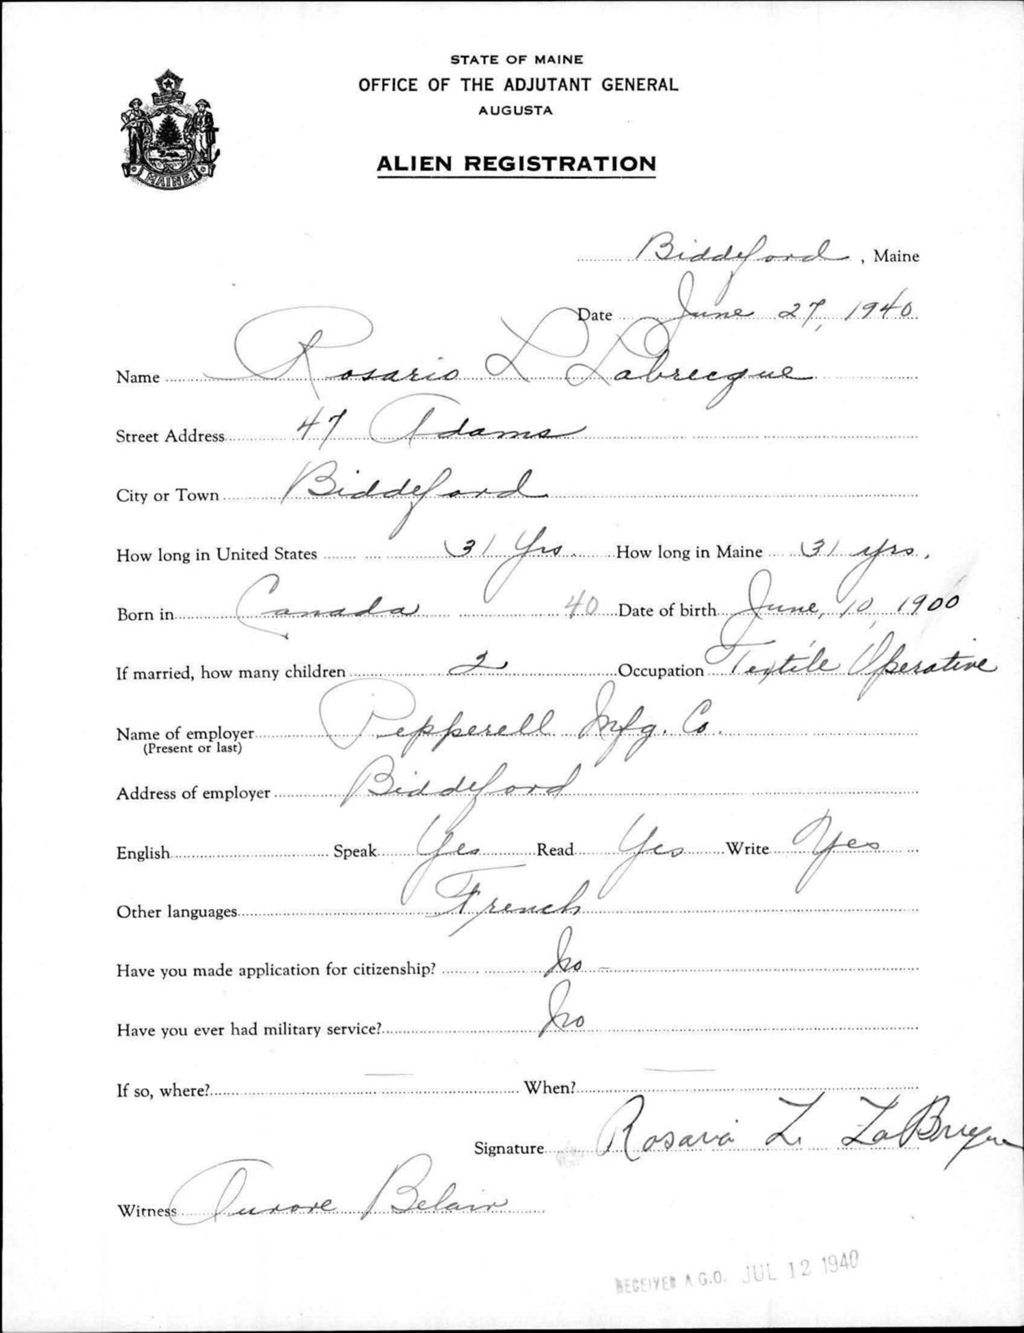 STATE OF MAINE
OFFICE OF THE ADJUTANT GENERAL
AUGUSTA
ALIEN REGISTRATION
MAINE
Biddeford, Maine
Date June 27, 1940
Name Rosario L Labrecque
Street Address 47 Adams
City or Town Biddeford
How long in United States 31 Yrs. How long in Maine 31 yrs.
Born in Canada 40 Date of birth June, 10, 1900
If married, how many children 2 Occupation Textile Operative
Name of employer Pepperell Mfg. Co.
(Present or last)
Address of employer Biddeford
English Speak Yes Read Yes Write Yes
Other languages French
Have you made application for citizenship? No -
Have you ever had military service? No
If so, where? — When? —
Signature Rosario L. LaBrecque
Witness Aurore Belair
RECEIVED A.G.O. JUL 12 1940